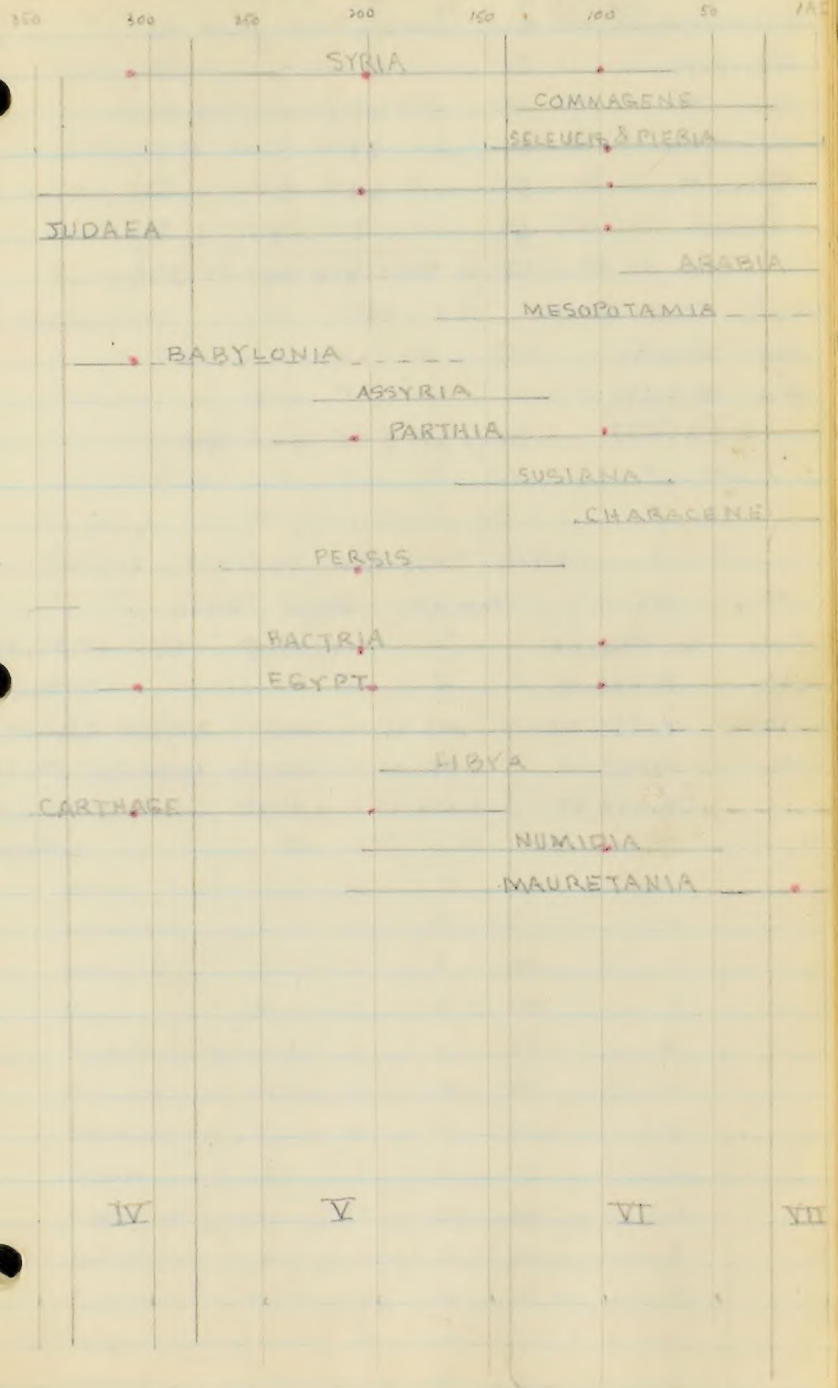 350 300 250 200 150 100 50 1AD
SYRIA
COMMAGENE
SELEUCIA & PIERIA
JUDAEA
ARABIA
MESOPOTAMIA
BABYLONIA
ASSYRIA
PARTHIA
SUSIANA
CHARACENE
PERSIS
BACTRIA
EGYPT
LIBYA
CARTHAGE
NUMIDIA
MAURETANIA
IV V VI VII